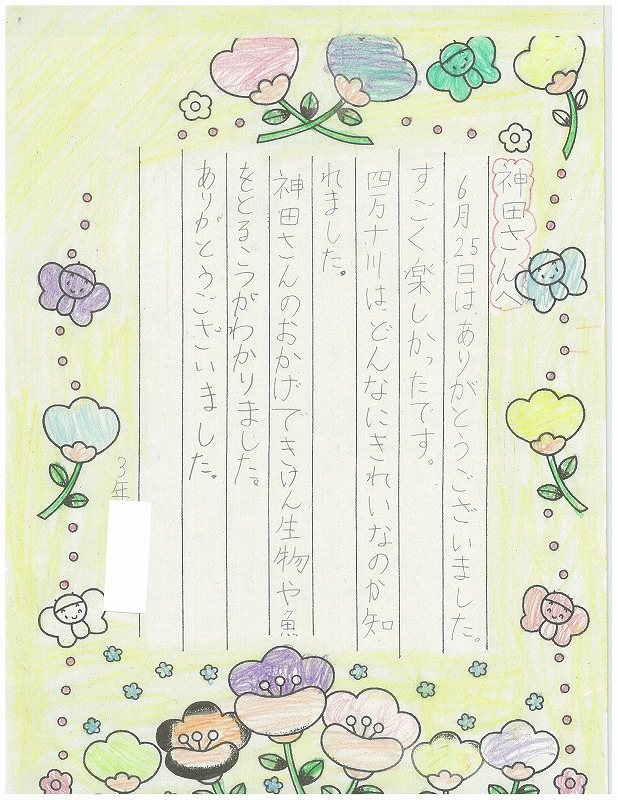 神田さんへ
6月25日は、ありがとうございました。
すごく楽しかったです。
四万十川は、どんなにきれいなのか知
れました。
神田さんのおかげできけん生物や魚
をとるこうがわかりました。
ありがとうございました。
3年